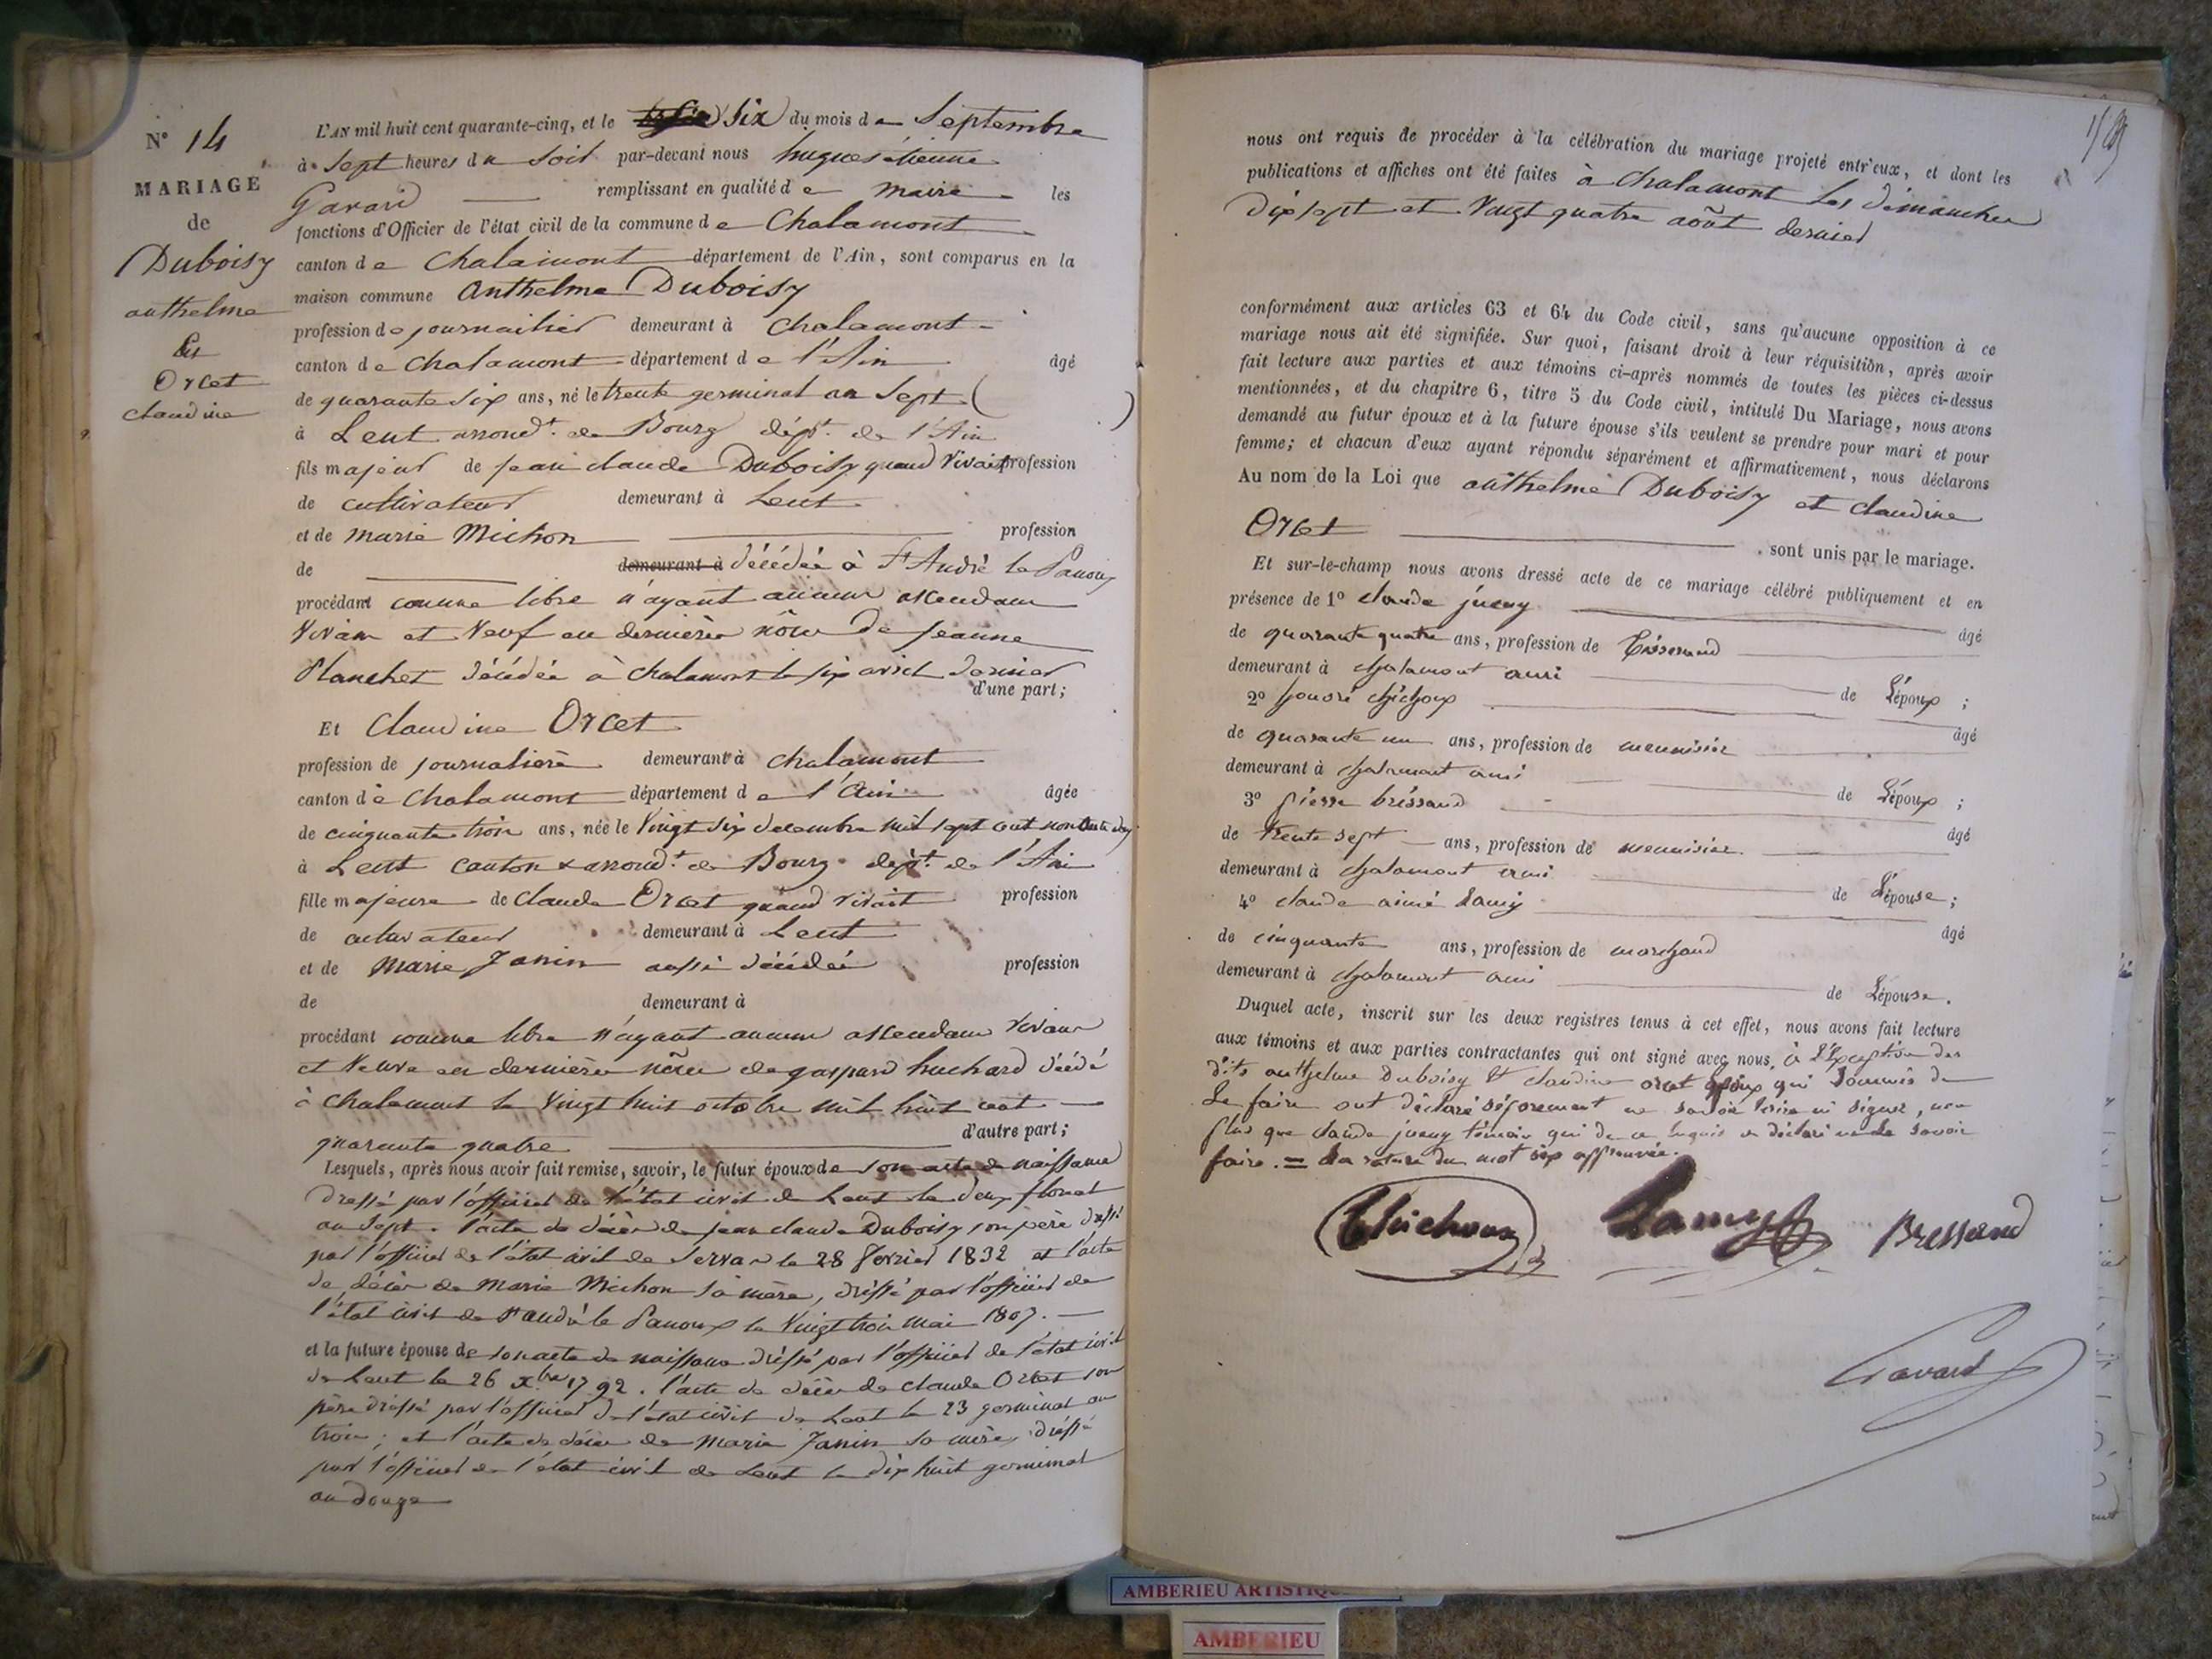 N° 14
MARIAGE
de
Duboisy
anthelme
Et
Orcet
claudine
L'AN mil huit cent quarante-cinq, et le six du mois de Septembre
à sept heures du soir par-devant nous hugues étienne
Gavard remplissant en qualité de maire les
fonctions d'Officier de l'état civil de la commune de Chalamont
canton de Chalamont département de l'Ain, sont comparus en la
maison commune Anthelme Duboisy
profession de journailier demeurant à Chalamont
canton de Chalamont département de l'Ain âgé
de quarante six ans, né le trente germinal an sept ( )
à Lent arrondt. de Bourg dépt. de l'Ain
fils majeur de jean claude Duboisy quand vivait profession
de cultivateur demeurant à Lent
et de marie Michon profession
de demeurant à décédée à St André le Panoux
procédant comme libre n'ayant aucuns ascendans
vivans et veuf en dernières nôces de jeanne
Planchet décédée à chalamont le six avril dernier
d'une part;
Et Claudine Orcet
profession de journalière demeurant à chalamont
canton de Chalamont département de l'Ain âgée
de cinquante trois ans, née le vingt six decembre mil sept cent
à Lent canton & arrondt. de Bourg dépt. de l'Ain
fille majeure de Claude Orcet quand vivait profession
de cultivateur demeurant à Lent
et de Marie Janin aussi décédée profession
de demeurant à
procédant comme libre n'ayant aucuns ascendans vivans
et veuve en dernières nôces de gaspard huchard décédé
à Chalamont le vingt huit octobre mil huit cent
quarante quatre d'autre part;
Lesquels, après nous avoir fait remise, savoir, le futur époux de son acte de naissance
dressé par l'officier de l'état civil de Lent le deux floréal
an sept. l'acte de décès de jean claude Duboisy son père dressé
par l'officier de l'état civil de Servas le 28 février 1832 et l'acte
de décès de Marie Michon sa mère, dressé par l'officier de
l'état civil de St andré le Panoux le vingt trois mai 1807.
et la future épouse de son acte de naissance dressé par l'officier de l'état civil
de Lent le 26 xbre 1792. l'acte de décès de claude Orcet son
père dressé par l'officier de l'état civil de Lent le 23 germinal an
trois; et l'acte de décès de Marie Janin sa mère, dressé
par l'officier de l'état civil de Lent le dix huit germinal
an douze
nous ont requis de procéder à la célébration du mariage projeté entr'eux, et dont les
publications et affiches ont été faites à Chalamont les dimanches
dix sept et vingt quatre août dernier
conformément aux articles 63 et 64 du Code civil, sans qu'aucune opposition à ce
mariage nous ait été signifiée. Sur quoi, faisant droit à leur réquisition, après avoir
fait lecture aux parties et aux témoins ci-après nommés de toutes les pièces ci-dessus
mentionnées, et du chapitre 6, titre 5 du Code civil, intitulé Du Mariage, nous avons
demandé au futur époux et à la future épouse s'ils veulent se prendre pour mari et pour
femme; et chacun d'eux ayant répondu séparément et affirmativement, nous déclarons
Au nom de la Loi que anthelme Duboisy et claudine
Orcet sont unis par le mariage.
Et sur-le-champ nous avons dressé acte de ce mariage célébré publiquement et en
présence de 1° claude jueny âgé
de quarante quatre ans, profession de Tisserand
demeurant à chalamont ami de l'époux;
2° honoré chichoux âgé
de quarante un ans, profession de menuisier
demeurant à chalamont ami de l'époux;
3° pierre bressand âgé
de trente sept ans, profession de menuisier
demeurant à chalamont ami de l'épouse;
4° claude aimé Lamy âgé
de cinquante ans, profession de marchand
demeurant à chalamont ami de l'épouse.
Duquel acte, inscrit sur les deux registres tenus à cet effet, nous avons fait lecture
aux témoins et aux parties contractantes qui ont signé avec nous, à l'Exception des
dits anthelme Duboisy et claudine orcet époux qui sommés de
le faire ont déclaré séparément ne savoir écrire ni signer, non
plus que claude jueny témoin qui de ce requis a déclaré ne le savoir
faire. = la rature du mot six approuvée.
Chichoux Lamy Bressand
Gavard
AMBERIEU ARTISTIQ
AMBERIEU